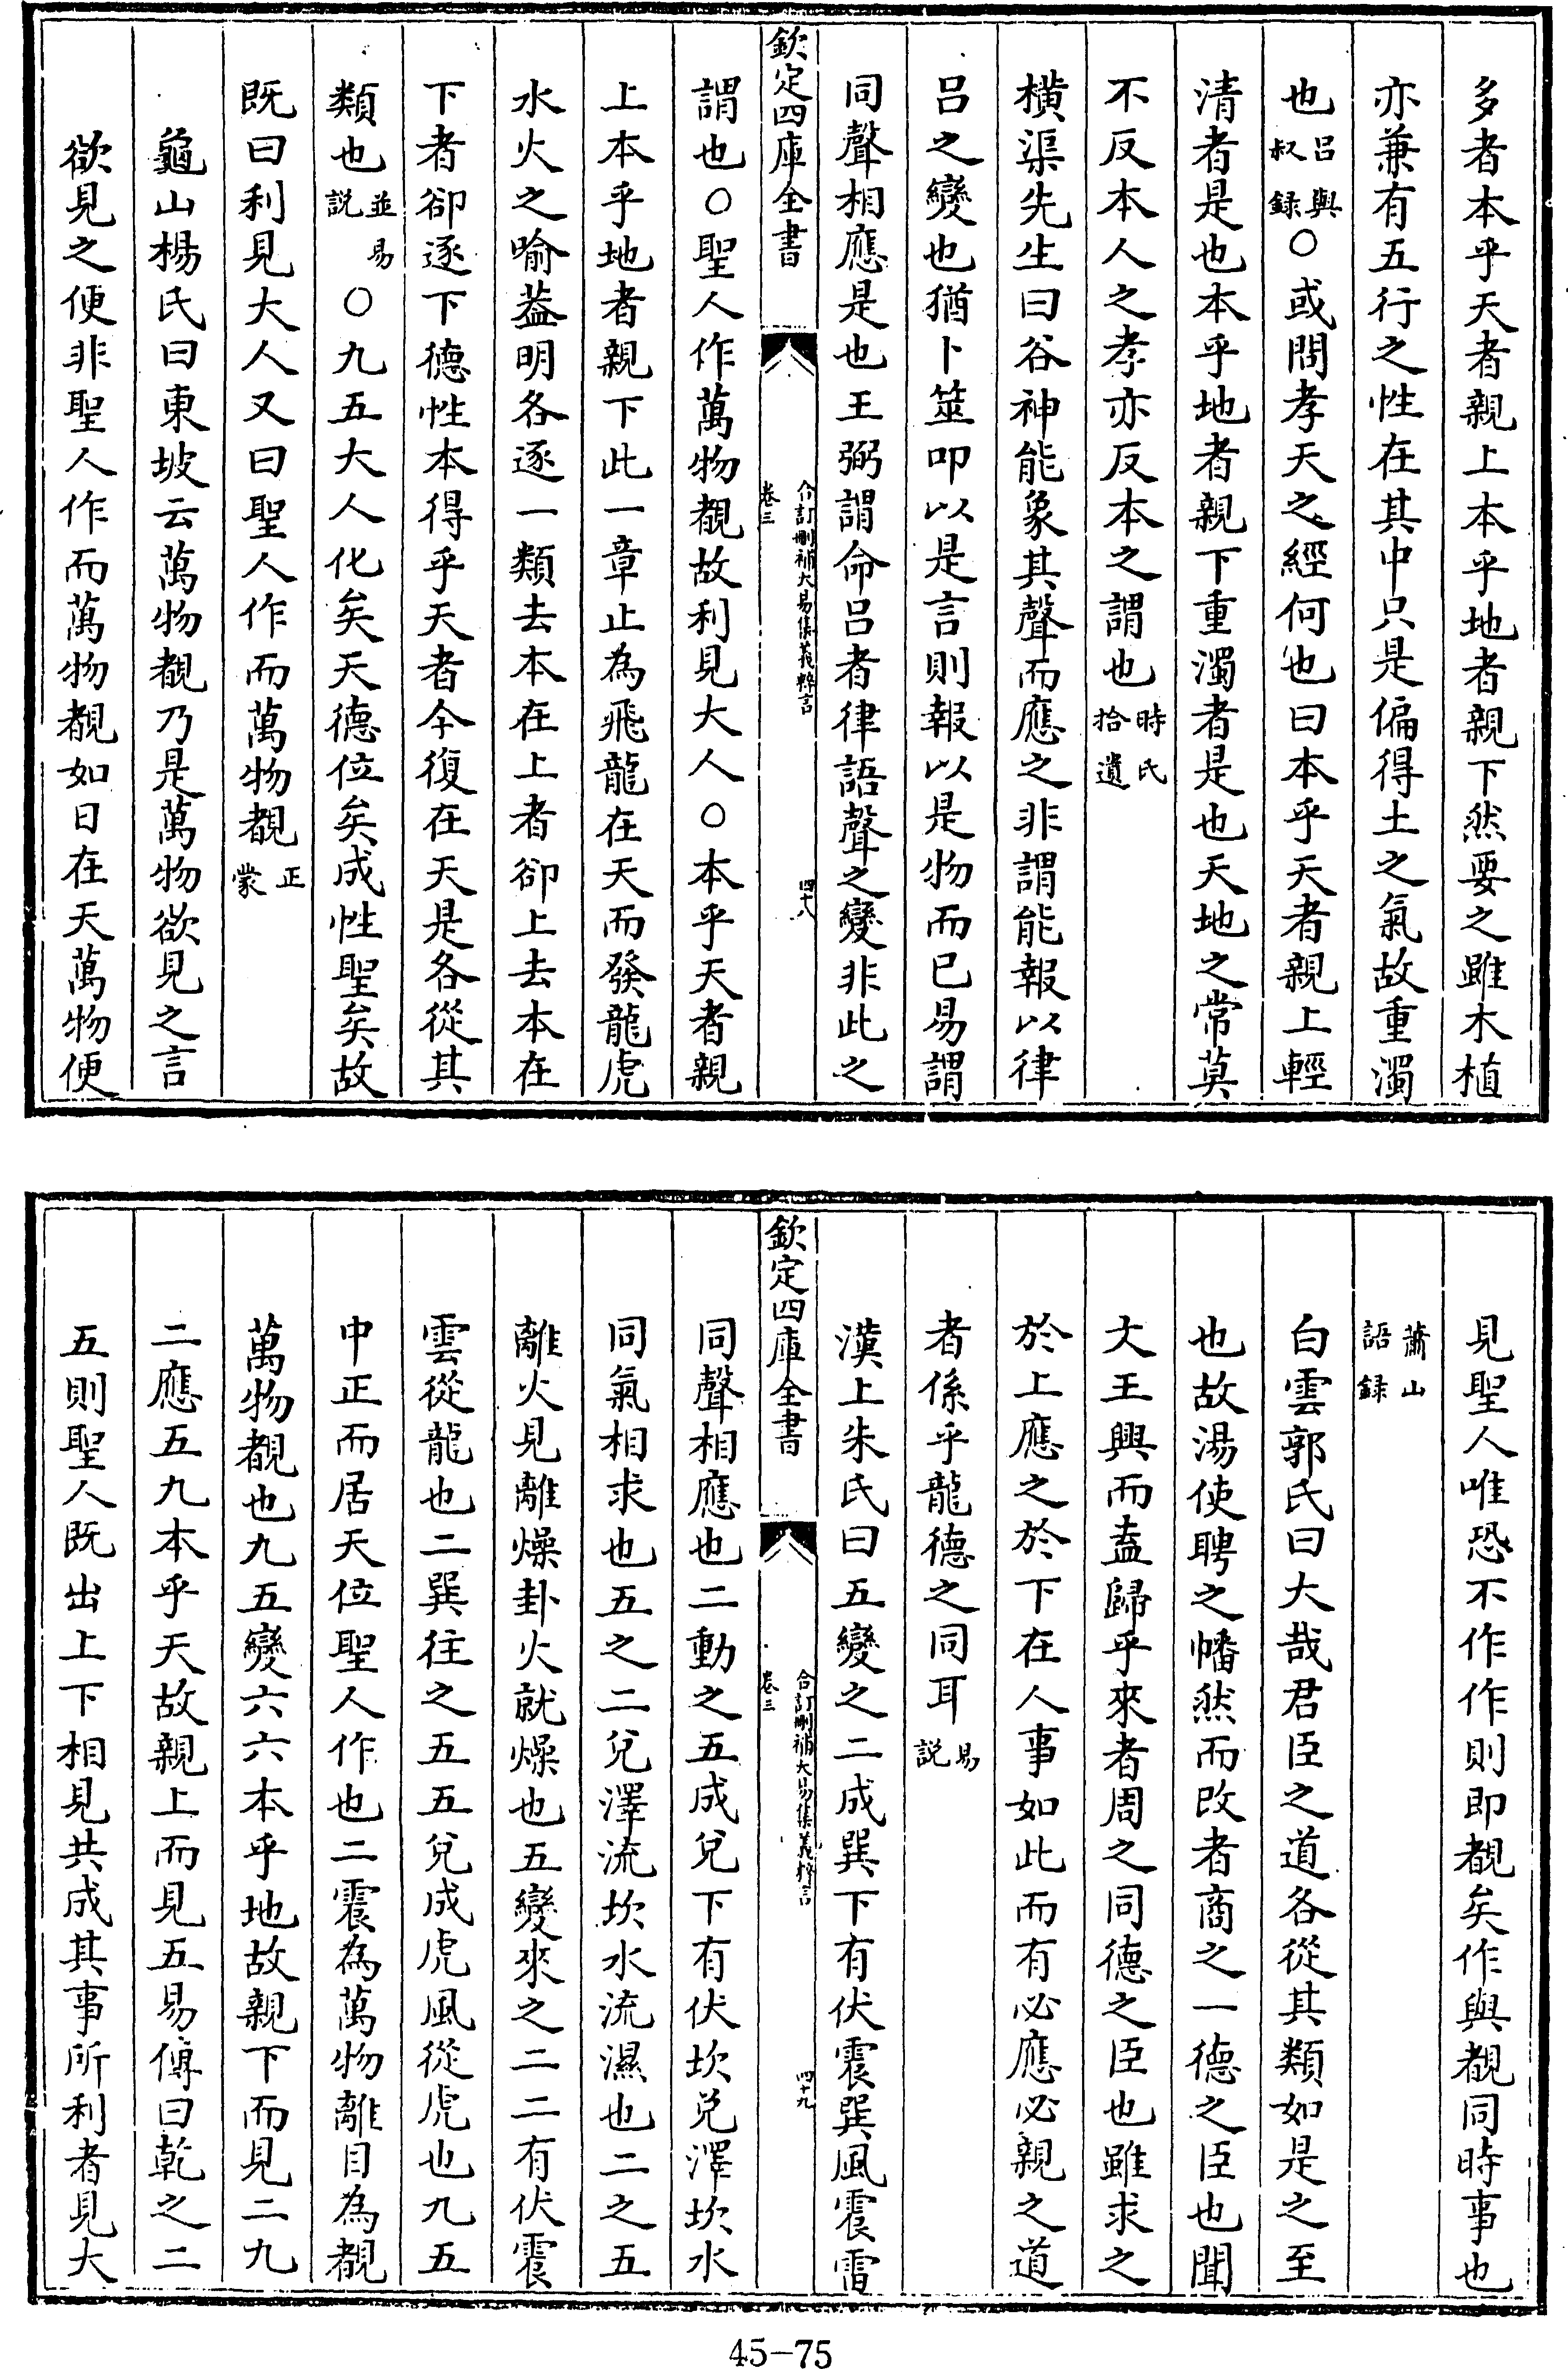 多者本乎天者親上本乎地者親下然要之雖木植
亦兼有五行之性在其中只是偏得土之氣故重濁
也吕與叔録○或問孝天之經何也曰本乎天者親上輕
清者是也本乎地者親下重濁者是也天地之常莫
不反本人之孝亦反本之謂也時氏拾遺
横渠先生曰谷神能象其聲而應之非謂能報以律
吕之變也猶卜筮叩以是言則報以是物而已易謂
同聲相應是也王弼謂命吕者律語聲之變非此之
欽定四庫全書
合訂刪補大易集義粹言
卷三
四十八
謂也○聖人作萬物覩故利見大人○本乎天者親
上本乎地者親下此一章止為飛龍在天而發龍虎
水火之喻葢明各逐一類去本在上者卻上去本在
下者卻逐下德性本得乎天者今復在天是各從其
類也並易説○九五大人化矣天德位矣成性聖矣故
既曰利見大人又曰聖人作而萬物覩正蒙
龜山楊氏曰東坡云萬物覩乃是萬物欲見之言
欲見之便非聖人作而萬物覩如日在天萬物便
見聖人唯恐不作作則即覩矣作與覩同時事也
蕭山語録
白雲郭氏曰大哉君臣之道各從其類如是之至
也故湯使聘之幡然而改者商之一德之臣也聞
大王興而盍歸乎來者周之同德之臣也雖求之
於上應之於下在人事如此而有必應必親之道
者係乎龍德之同耳易説
漢上朱氏曰五變之二成巽下有伏震巽風震雷
欽定四庫全書
合訂刪補大易集義粹言
卷三
四十九
同聲相應也二動之五成兌下有伏坎兌澤坎水
同氣相求也五之二兌澤流坎水流濕也二之五
離火見離燥卦火就燥也五變來之二二有伏震
雲從龍也二巽往之五五兌成虎風從虎也九五
中正而居天位聖人作也二震為萬物離目為覩
萬物覩也九五變六六本乎地故親下而見二九
二應五九本乎天故親上而見五易傳曰乾之二
五則聖人既出上下相見共成其事所利者見大
45-75